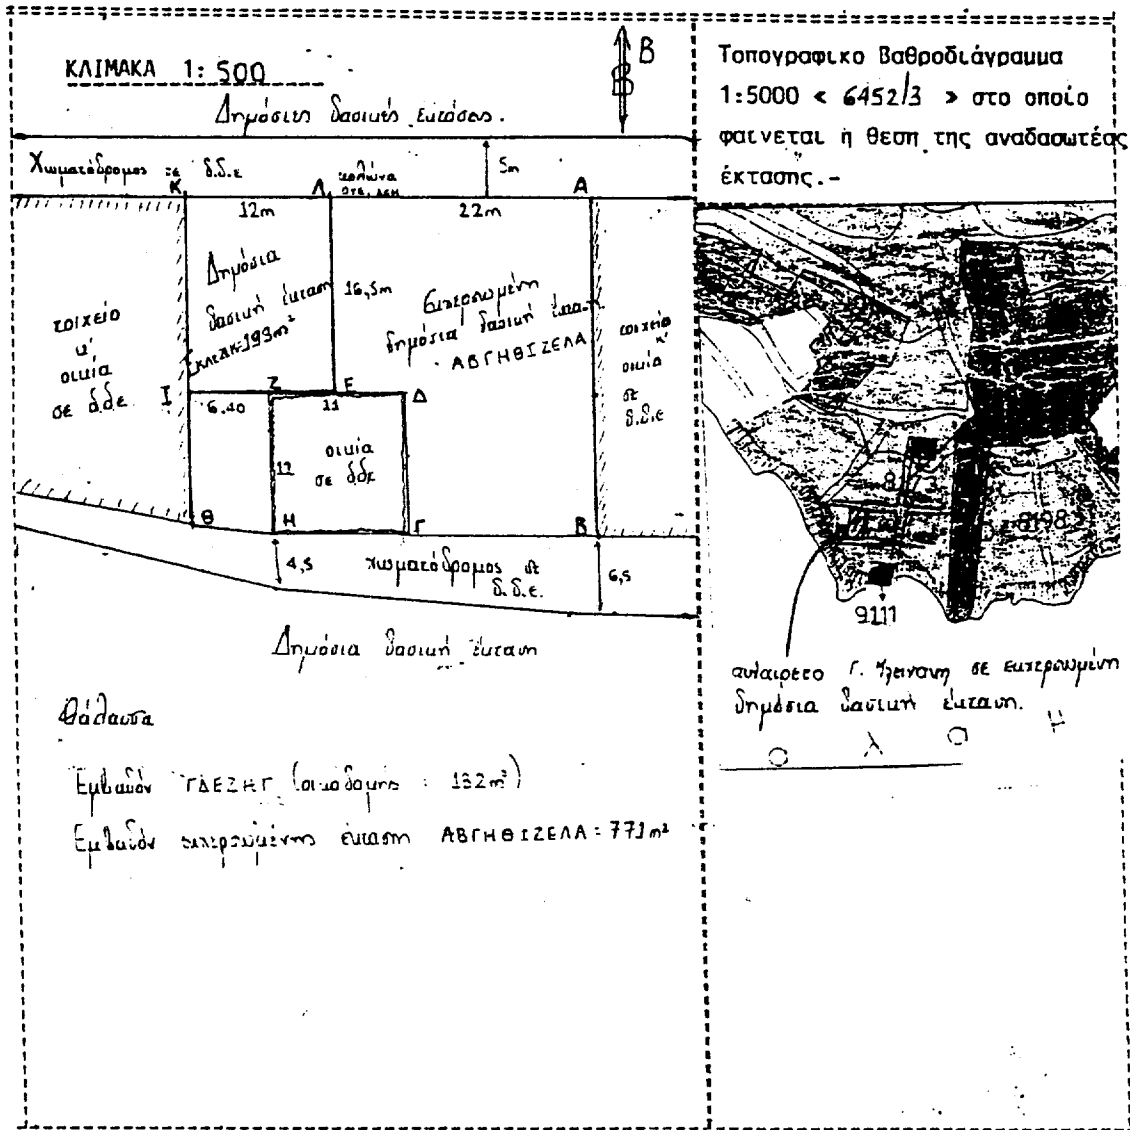 ΚΛΙΜΑΚΑ 1: 500
Β
Δημόσιες δασικές εκτάσεις.
Χωματόδρομος σε δ.δ.ε
5m
Κ
Λ
κολώνα
ΟΤΕ, ΔΕΗ
Α
12m
22m
Δημόσια
δασική έκταση
193m²
16,5m
δημόσια δασική
ΑΒΓΗΘΙΖΕΛΑ
τοιχείο
κ'
οικία
σε δ.δ.ε.
τοιχείο
κ'
οικία
σε
δ.δ.ε
Ι
Ζ
Ε
Δ
6.40
11
12
οικία
σε δδε
Θ
Η
Γ
Β
4,5
χωματόδρομος σε
δ.δ.ε.
6,5
Δημόσια δασική έκταση
Θάλασσα
Εμβαδόν ΓΔΕΖΗΓ (οικοδομής : 132m²)
Εμβαδόν έκταση ΑΒΓΗΘΙΖΕΛΑ = 771m²
Τοπογραφικο Βαθροδιάγραμμα
1:5000 « 6452/3 » στο οποίο
φαινεται η θεση της αναδασωτέας
έκτασης.-
8198
9111
αυθαίρετο Γ. σε
δημόσια δασική έκταση.